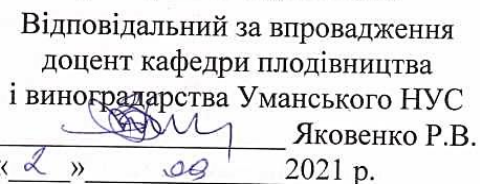 Відповідальний за впровадження
доцент кафедри плодівництва
і виноградарства Уманського НУС
Яковенко Р.В.
« 2 » 09 2021 р.